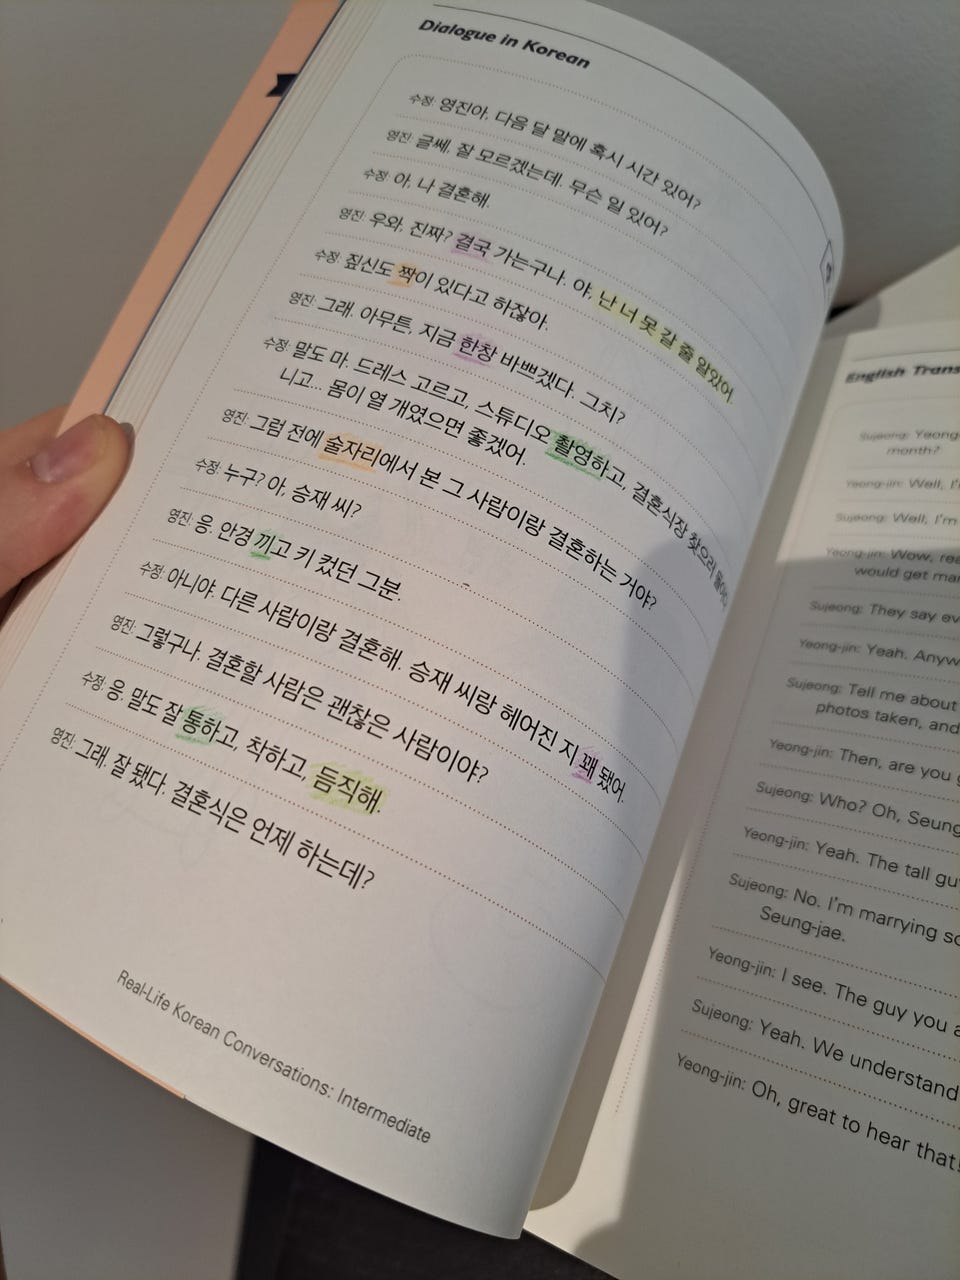 Dialogue in Korean
수정: 영진아, 다음 달 말에 혹시 시간 있어?
영진: 글쎄, 잘 모르겠는데. 무슨 일 있어?
수정: 아, 나 결혼해.
영진: 우와, 진짜? 결국 가는구나. 야, 난 너 못 갈 줄 알았어.
수정: 짚신도 짝이 있다고 하잖아.
영진: 그래. 아무튼, 지금 한창 바쁘겠다. 그치?
수정: 말도 마. 드레스 고르고, 스튜디오 촬영하고, 결혼식장 찾으러
니고... 몸이 열 개였으면 좋겠어.
영진: 그럼 전에 술자리에서 본 그 사람이랑 결혼하는 거야?
수정: 누구? 아, 승재 씨?
영진: 응. 안경 끼고 키 컸던 그분.
수정: 아니야. 다른 사람이랑 결혼해. 승재 씨랑 헤어진 지 꽤 됐어.
영진: 그렇구나. 결혼할 사람은 괜찮은 사람이야?
수정: 응. 말도 잘 통하고, 착하고, 듬직해.
영진: 그래. 잘 됐다. 결혼식은 언제 하는데?
Real-Life Korean Conversations: Intermediate
English Trans
Sujeong: Yeong
month?
Yeong-jin: Well, I'
Sujeong: Well, I'm
Yeong-jin: Wow, rea
would get mar
Sujeong: They say ev
Yeong-jin: Yeah. Anyw
Sujeong: Tell me about
photos taken, and
Yeong-jin: Then, are you g
Sujeong: Who? Oh, Seung
Yeong-jin: Yeah. The tall gu
Sujeong: No. I'm marrying so
Seung-jae.
Yeong-jin: I see. The guy you a
Sujeong: Yeah. We understand
Yeong-jin: Oh, great to hear that!